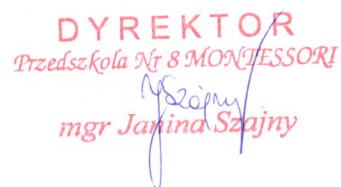 DYREKTOR
Przedszkola Nr 8 MONTESSORI
JSzajny
mgr Janina Szajny